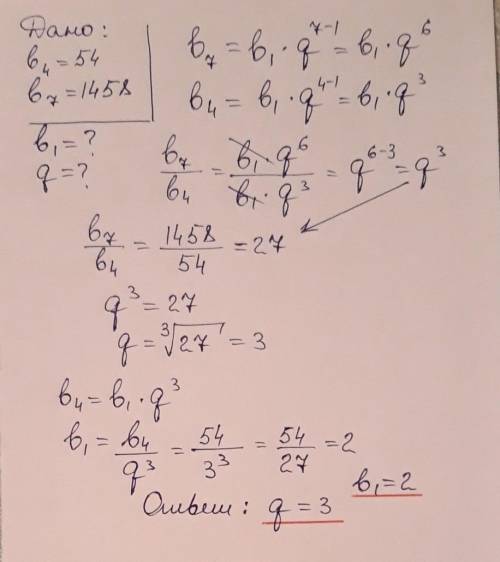 Дано:
b₄ = 54
b₇ = 1458
b₁ = ?
q = ?
b₇ = b₁ · q⁷⁻¹ = b₁ · q⁶
b₄ = b₁ · q⁴⁻¹ = b₁ · q³
b₇/b₄ = b₁ · q⁶/b₁ · q³ = q⁶⁻³ = q³
b₇/b₄ = 1458/54 = 27
q³ = 27
q = ³√27 = 3
b₄ = b₁ · q³
b₁ = b₄/q³ = 54/3³ = 54/27 = 2
Ответ: q = 3 b₁ = 2